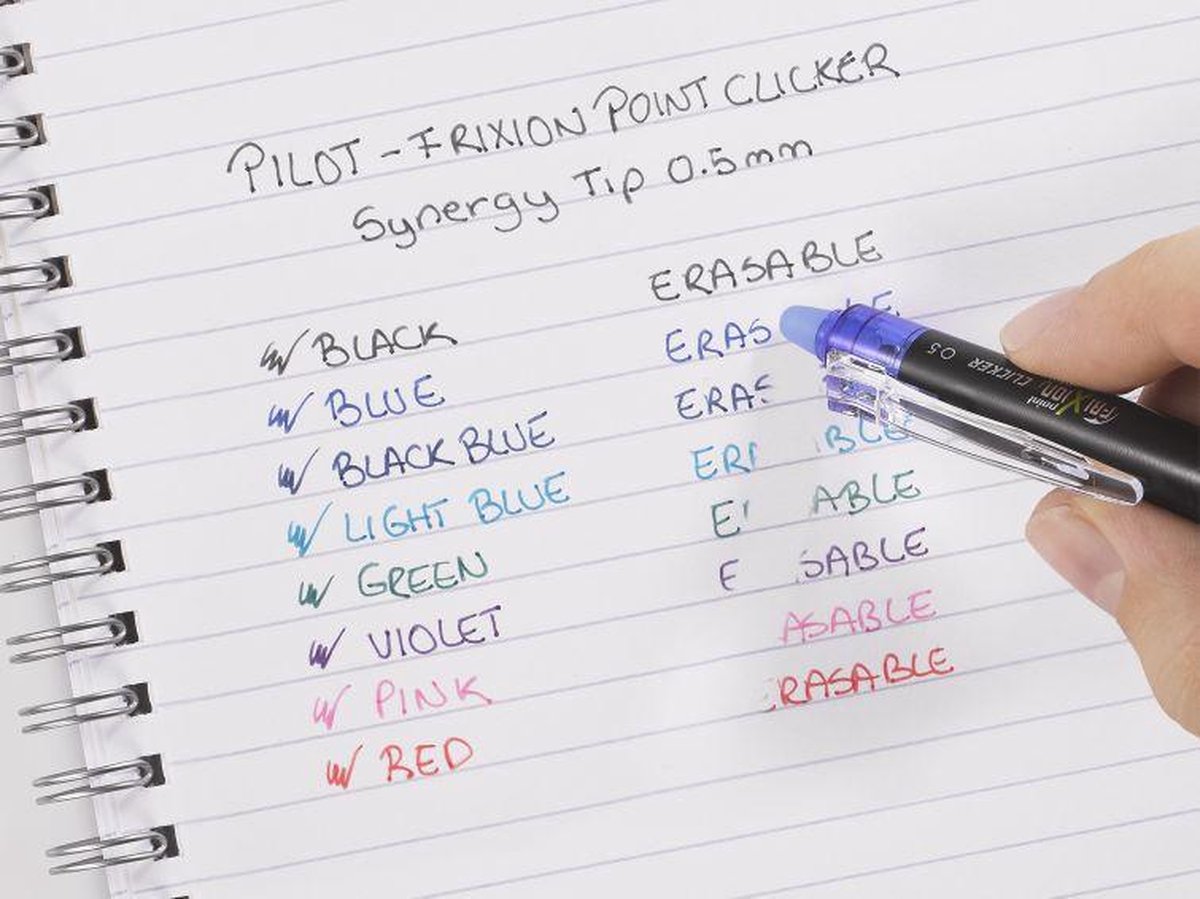 PILOT - FRIXION POINT CLICKER
Synergy Tip 0.5mm
ERASABLE
BLACK
ERAS LE
BLUE
ERAS
BLACK BLUE
ER BLE
LIGHT BLUE
E ABLE
GREEN
E SABLE
VIOLET
ASABLE
PINK
RASABLE
RED
point FRIXION CLICKER 0.5